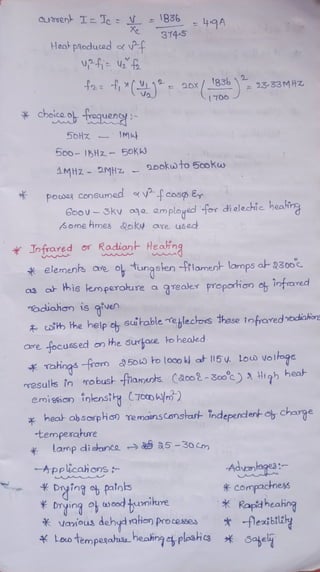 current I = Ic = V/Xc = 1836/374.5 = 4.9A
Heat produced ∝ V²f
V₁²f₁ = V₂²f₂
f₂ = f₁ × (V₁/V₂)² = 20 × (1836/1700)² = 23.33MHz
* choice of frequency :-
50Hz — 1MW
500 - 1KHz - 50KW
1MHz - 2MHz - 200kw to 500kw
* power consumed ∝ V² f cosφ Er
600V - 3KV are employed for dielectric heating
Some times 20kV are used
* Infrared or Radiant Heating
* elements are of tungsten-filament lamps at 2300°C
as at this temperature a greater proportion of infrared
radiation is given
* with the help of suitable reflectors these infrared radiations
are focussed on the surface to heated
* ratings from 250W to 1000W at 115V. low voltage
results in robust filaments. (200°C - 300°C) & High heat
emission intensity (7000W/m²)
* heat absorption remains constant independent of charge
temperature
* lamp distance → 25 - 30cm
Applications :- Advantages :-
* Drying of paints * compactness
* Drying of wood furniture * Rapid heating
* various dehydration processes * flexibility
* Low temperature heating of plastics * Safety